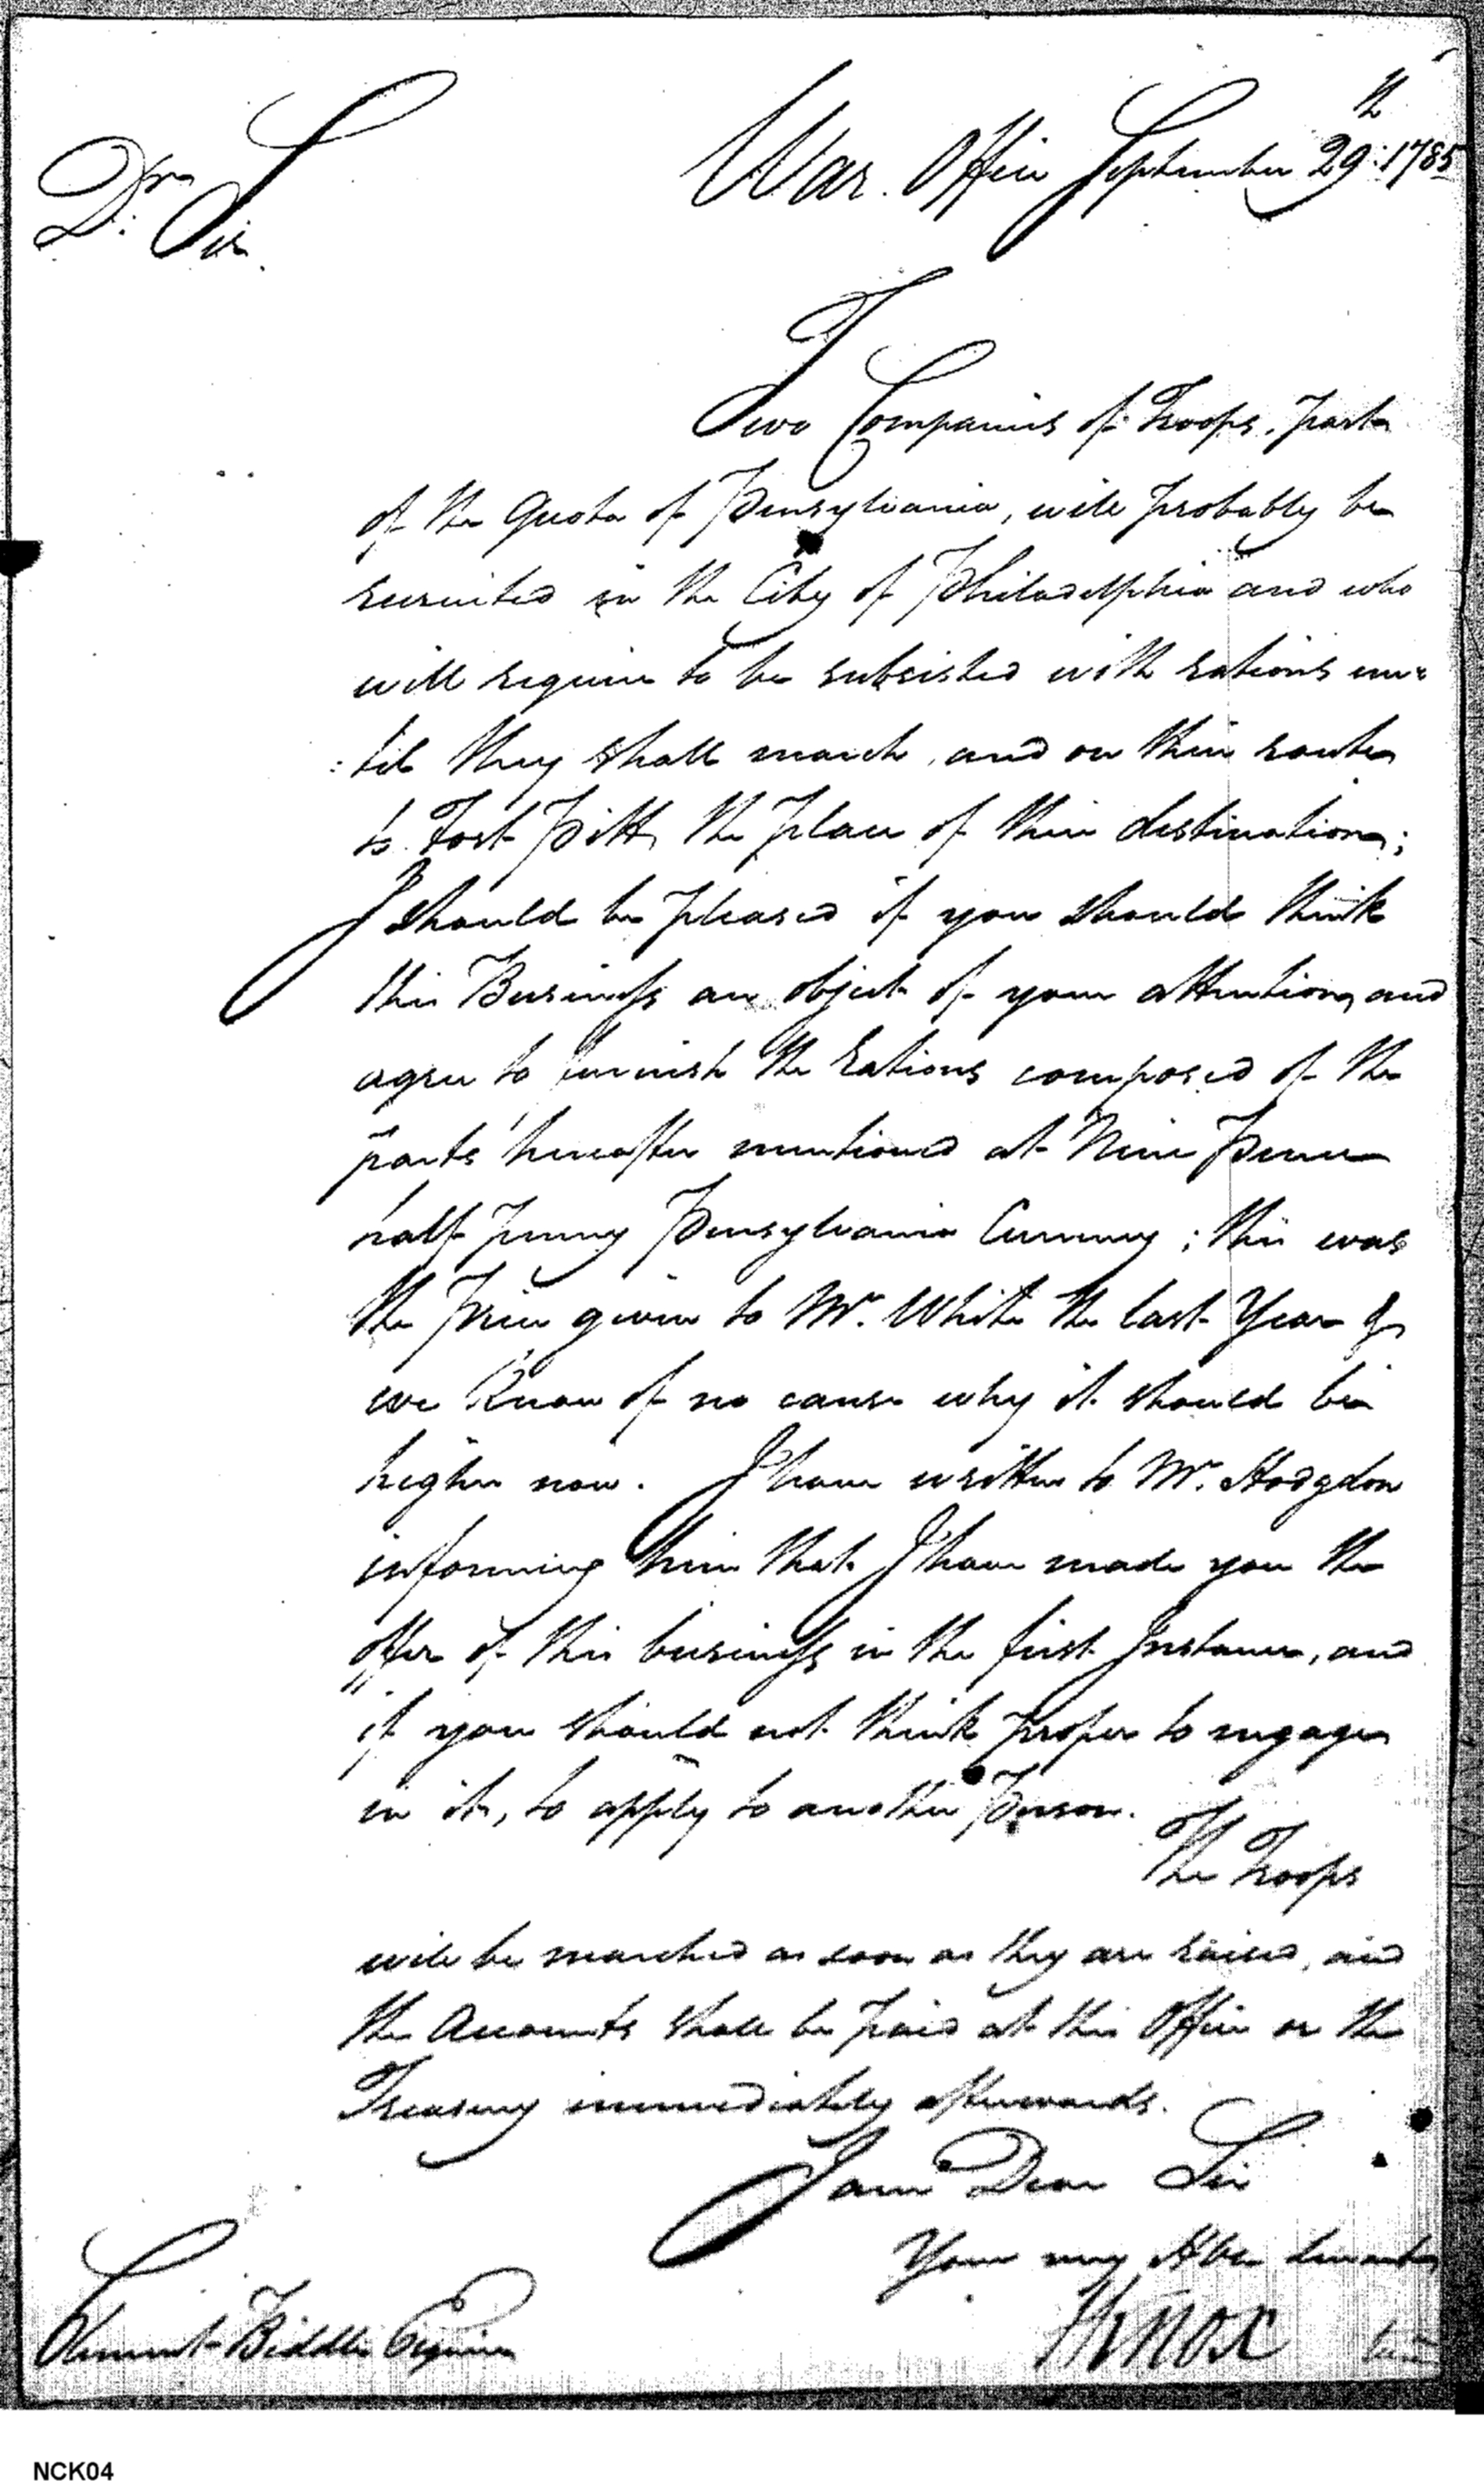 War. Office September 29th: 1785
Dr: Sir.
Two Companies of Troops, part
of the Quota of Pensylvania, will probably be
recruited in the City of Philadelphia and who
will require to be subsisted with rations un=
:til they shall march, and on their route
to Fort Pitt, the place of their destination;
I should be pleased if you should think
this Business an object of your attention, and
agree to furnish the rations composed of the
parts hereafter mentioned at Nine Pence
half penny Pensylvania Currency; this was
the price given to Mr. White the last Year &
we know of no cause why it should be
higher now. I have written to Mr. Hodgdon
informing him that I have made you the
offer of this business in the first Instance, and
if you should not think proper to engage
in it, to apply to another Person.
The Troops
will be marched as soon as they are raised, and
the Accounts shall be paid at this Office or the
Treasury immediately afterwards.
I am Dear Sir
Your very Hble Servant
HKnox
Clement Biddle Esquire
NCK04